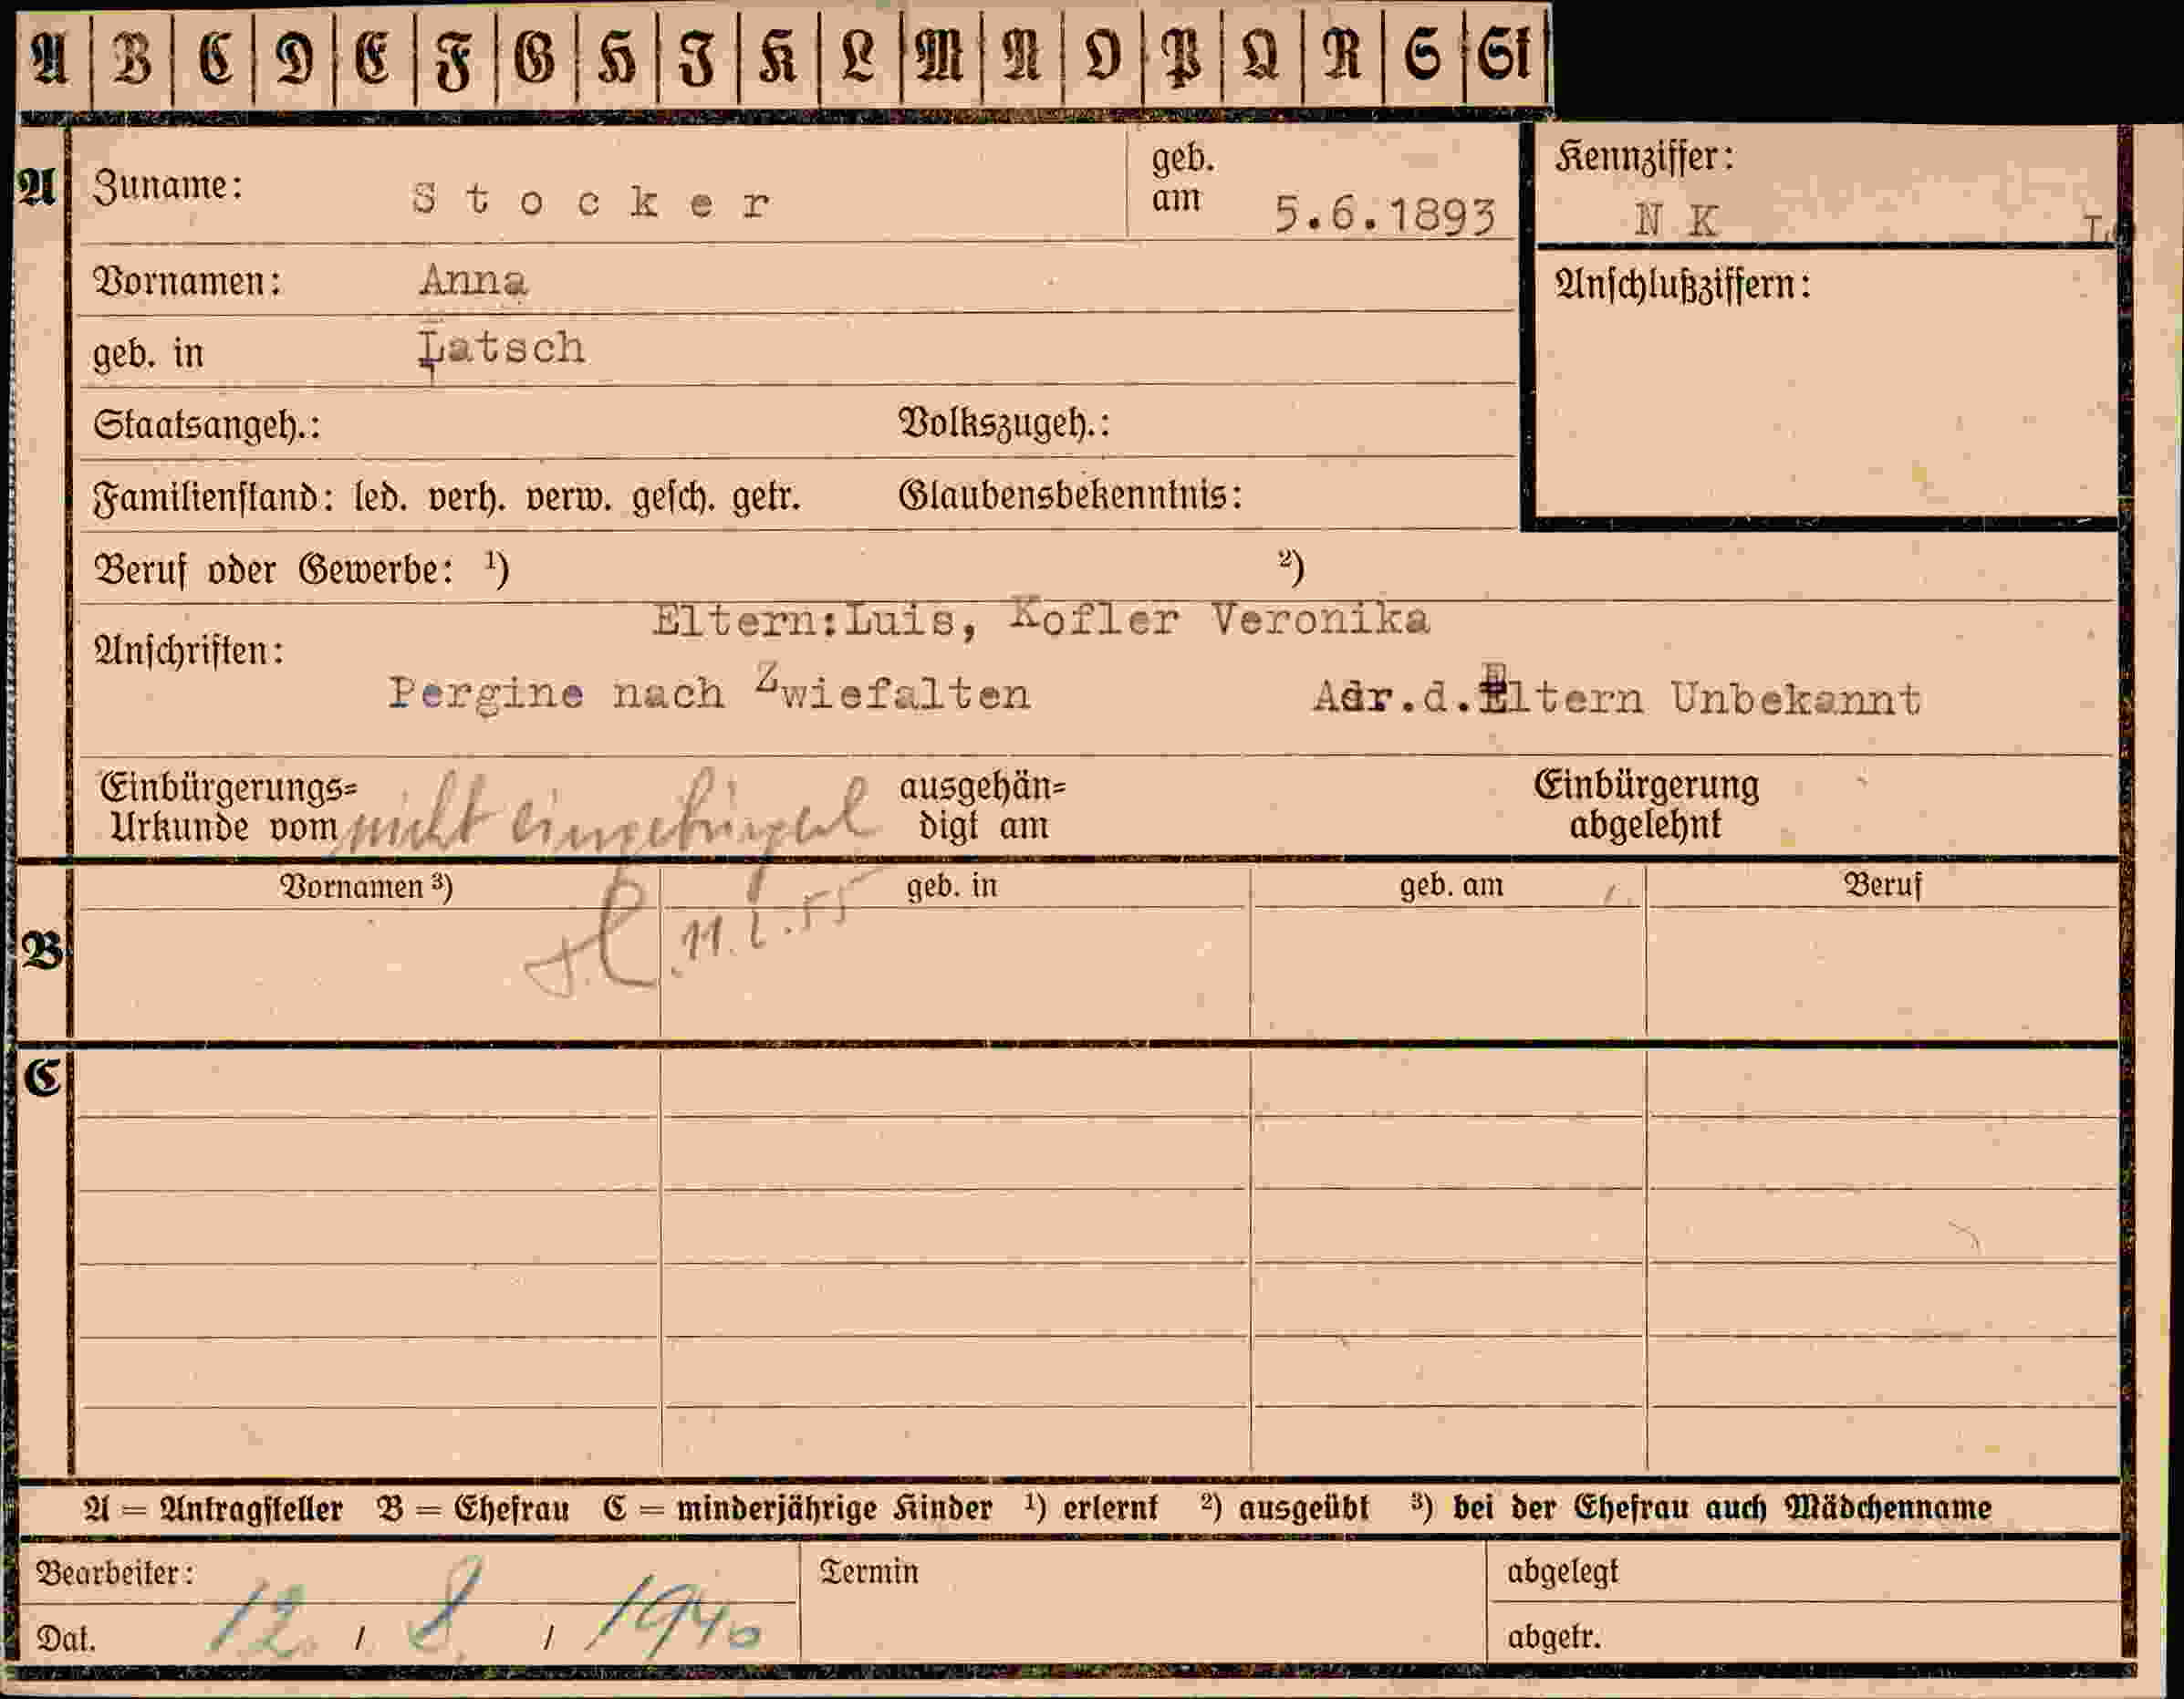 A B C D E F G H I K L M N O P Q R S St
A Zuname: Stocker geb. am 5.6.1893
Kennziffer:
N K
Vornamen: Anna
Anschlußziffern:
geb. in Latsch
Staatsangeh.: Volkszugeh.:
Familienstand: led. verh. verw. gesch. getr. Glaubensbekenntnis:
Beruf oder Gewerbe: ¹) ²)
Eltern:Luis, Kofler Veronika
Anschriften:
Pergine nach Zwiefalten Adr.d.Eltern Unbekannt
Einbürgerungs= ausgehän= Einbürgerung
Urkunde vom nicht eingebürgert digt am abgelehnt
Vornamen ³) geb. in geb. am Beruf
B
C
A = Antragsteller B = Ehefrau C = minderjährige Kinder ¹) erlernt ²) ausgeübt ³) bei der Ehefrau auch Mädchenname
Bearbeiter: Termin abgelegt
Dat. 12 / 8 / 1940 abgetr.